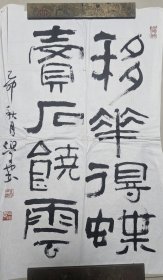 移花得蝶
賣石饒雲
乙卯秋月